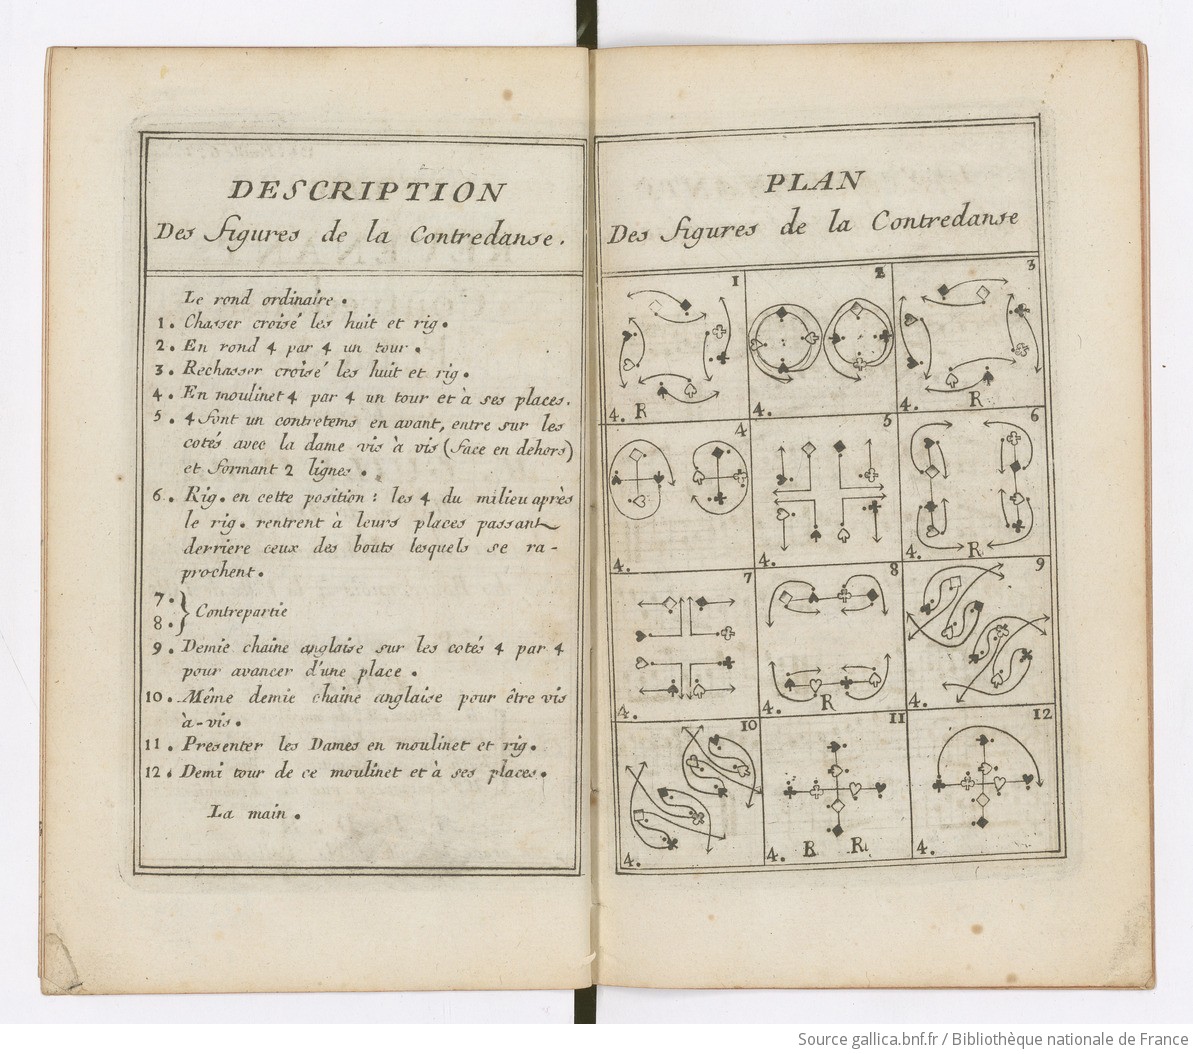 DESCRIPTION
Des figures de la Contredanse.
Le rond ordinaire.
1. Chasser croisé les huit et rig.
2. En rond 4 par 4 un tour.
3. Rechasser croisé les huit et rig.
4. En moulinet 4 par 4 un tour et à ses places.
5. 4 font un contretems en avant, entre sur les
cotés avec la dame vis à vis (face en dehors)
et formant 2 lignes.
6. Rig. en cette position : les 4 du milieu après
le rig. rentrent à leurs places passant
derriere ceux des bouts lesquels se ra-
prochent.
7. } Contrepartie
8. }
9. Demie chaine anglaise sur les cotés 4 par 4
pour avancer d'une place.
10. Même demie chaine anglaise pour être vis
à-vis.
11. Presenter les Dames en moulinet et rig.
12. Demi tour de ce moulinet et à ses places.
La main.
PLAN
Des figures de la Contredanse
1 2 3
4. R 4. 4. R
4 5 6
4. 4. 4. R
7 8 9
4. 4. R 4.
10 11 12
4. 4. R R. 4.
Source gallica.bnf.fr / Bibliothèque nationale de France